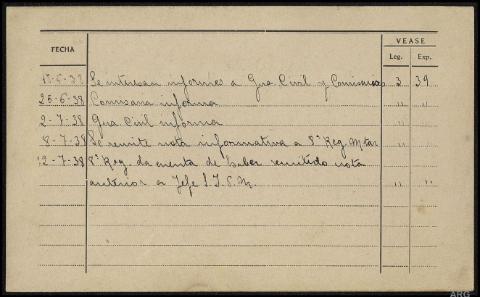 FECHA VEASE
Leg. Exp.
Se interesan informes a Gra Civil y Comisaria 3 39
25-6-38 Comisaria informa " "
2-7-38 Gra Civil informa " "
8-7-38 Se remite nota informativa a 8ª Reg. Mtar " "
12-7-38 8ª Reg. da cuenta de haber remitido nota
anterior a Jefe S.I.P.M. " "
ARG